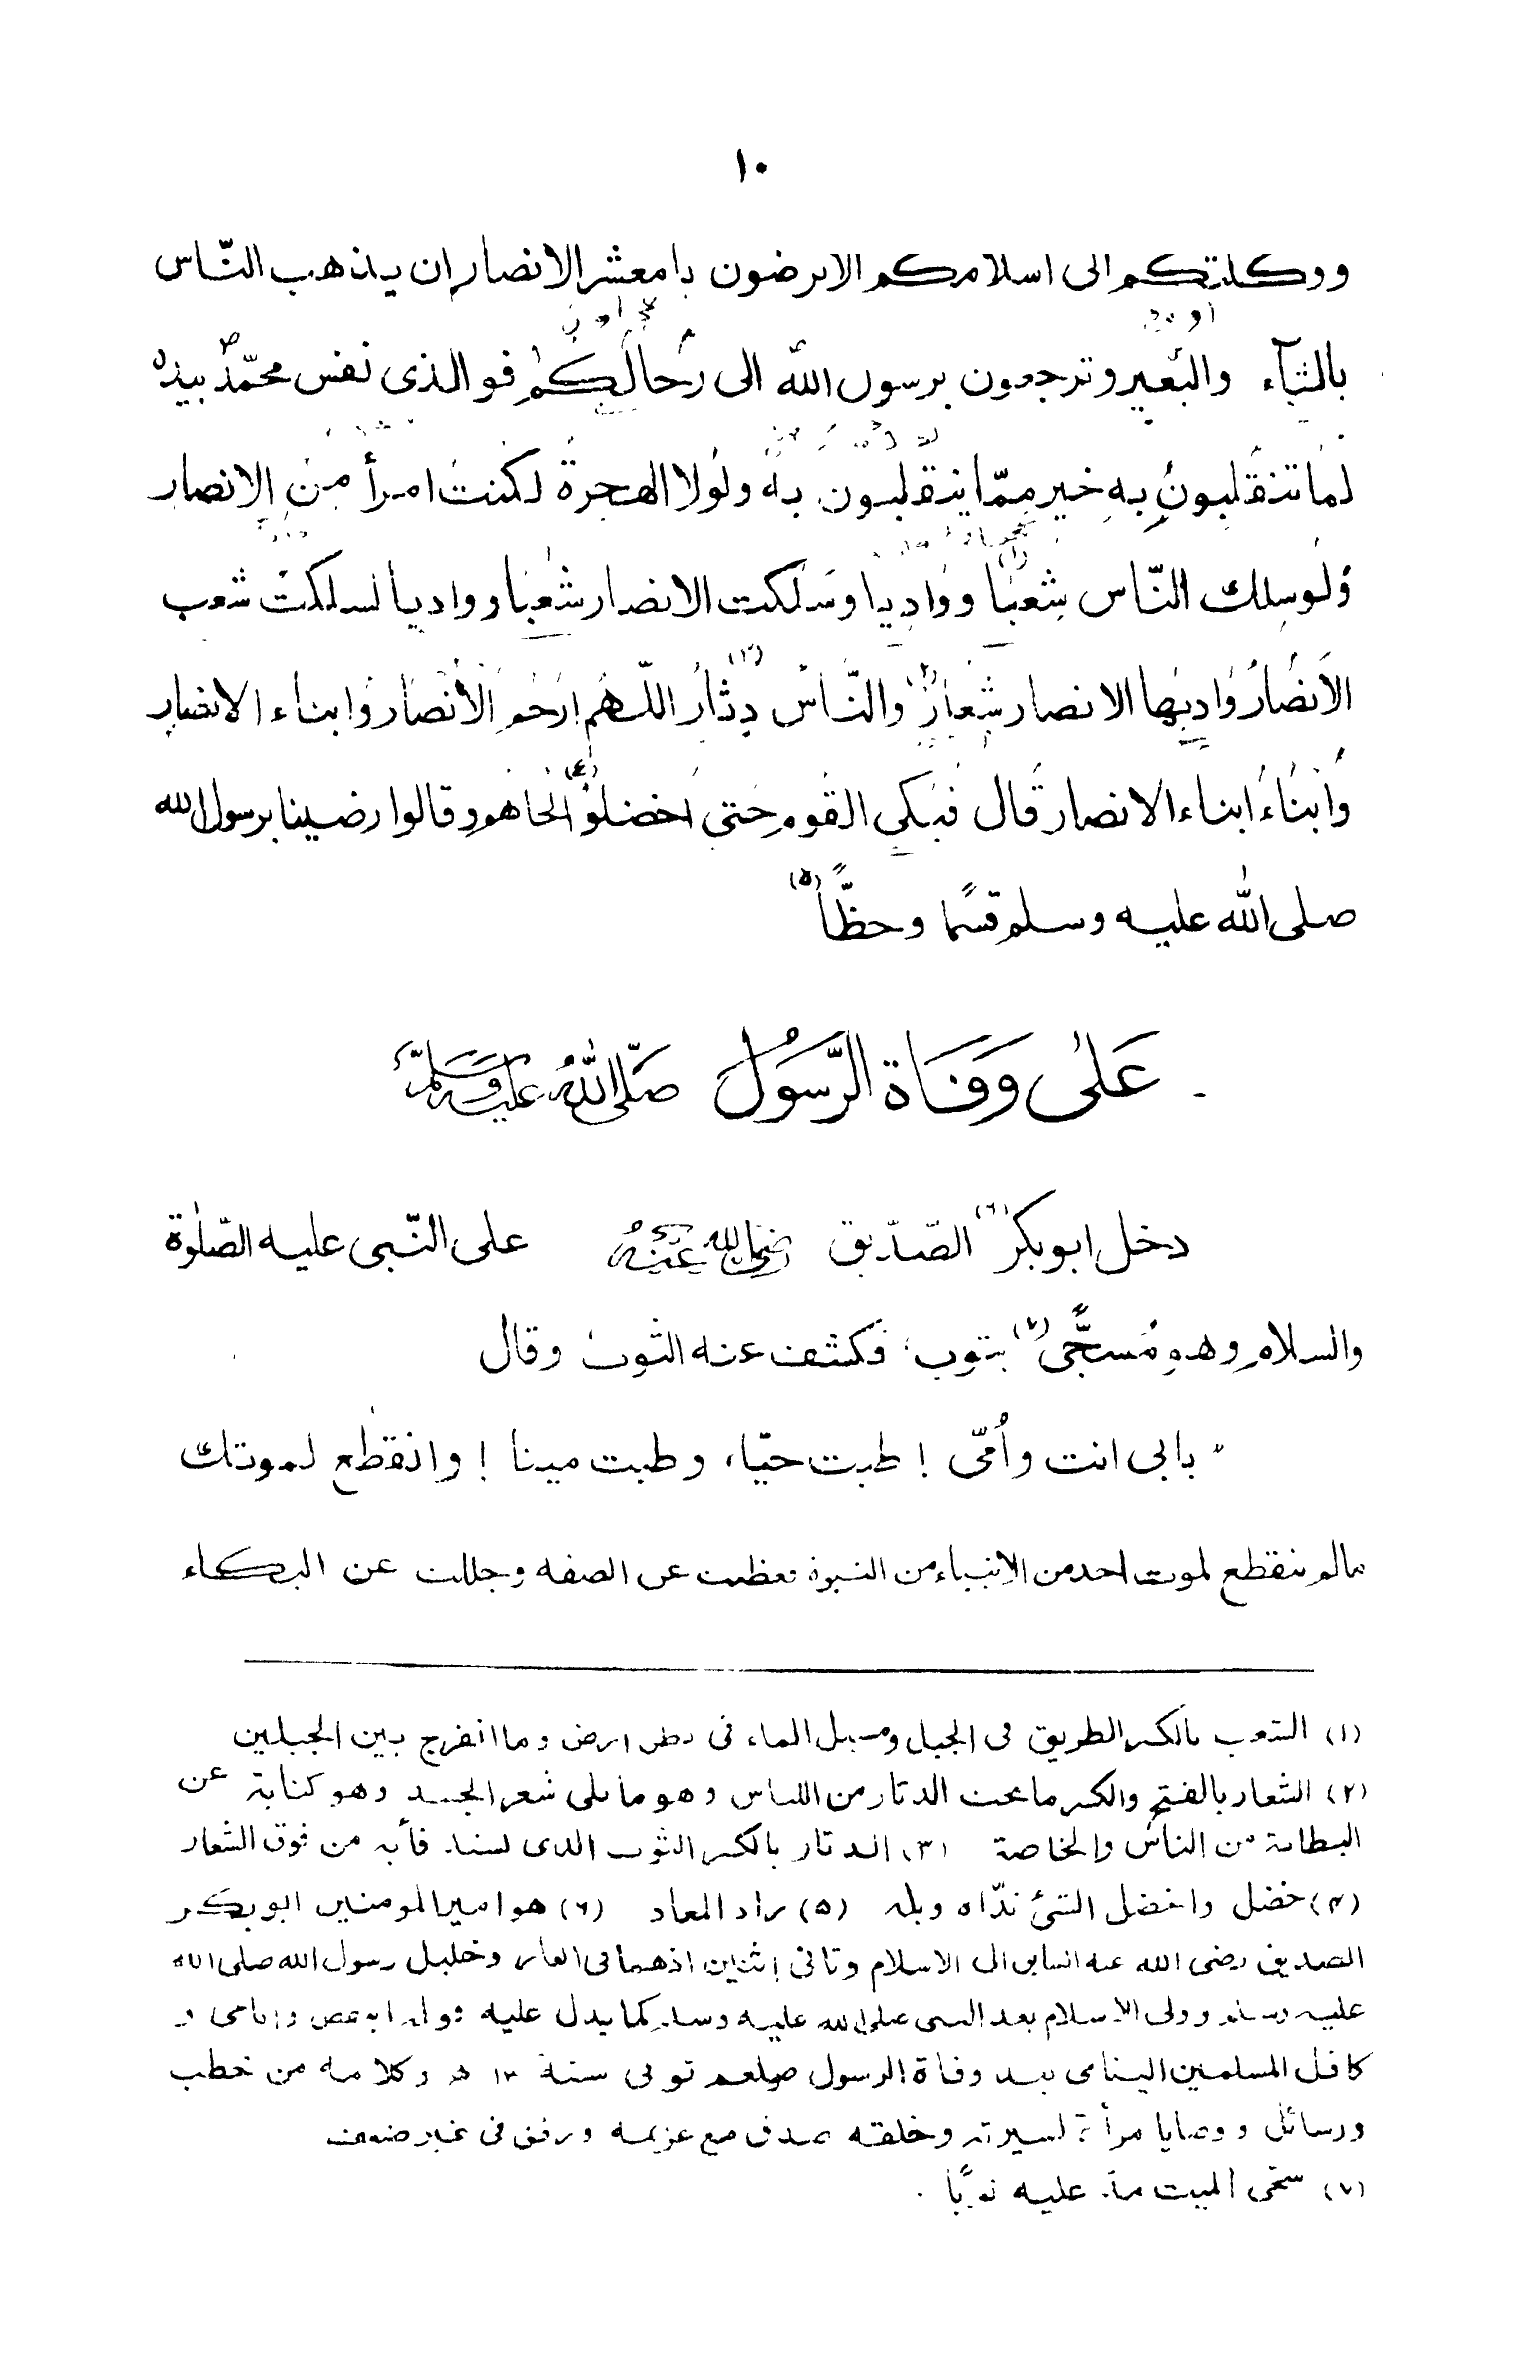 ١٠
ووكلتكم الى اسلامكم الا ترضون يا معشر الانصار ان يذهب النّاس
بالشآء والبعير وترجعون برسول الله الى رحالكم فو الذى نفس محمّد بيده
لما تنقلبون به خير ممّا ينقلبون به ولولا الهجرة لكنت امرأ من الانصار
ولو سلك النّاس شعبا وواديا وسلكت الانصار شعبا وواديا لسلكت شعب
الانصار واديها الانصار شعار والنّاس دثار اللّهم ارحم الانصار وابناء الانصار
وابناء ابناء الانصار قال فبكى القوم حتى اخضلوا لحاهم وقالوا رضينا برسول الله
صلى الله عليه وسلم قسمًا وحظًّا (٥)
عَلٰى وَفَاة الرّسَوُل صَلّى اللهُ عليه وسلّم
دخل ابوبكر (٦) الصّدّيق رضى الله عنه على النّبى عليه الصّلٰوة
والسلام وهو مُسجًّى (٧) بثوب، فكشف عنه الثوب وقال
" بابى انت وأُمّى ! طبت حيّا، وطبت ميتا ! وانقطع لموتك
مالم ينقطع لموت احد من الانبياء من النبوة فعظمت عن الصفه وجللت عن البكاء
(١) الشعب بالكسر الطريق فى الجبل ومسيل الماء فى بطن ارض وما انفرج بين الجبلين
(٢) الشعار بالفتح والكسر ما تحت الدثار من اللباس وهو ما يلى شعر الجسد وهو كناية عن
البطانة من الناس والخاصة (٣) الدثار بالكسر الثوب الذى من فوق الشعار
(٤) خضل واخضل الشئ ندّاه وبله (٥) زاد المعاد (٦) هو امير المومنين ابو بكر
الصديق رضى الله عنه السابق الى الاسلام وثانى اثنين اذهما فى الغار وخليل رسول الله صلى الله
عليه وسلم وولى الاسلام بعد النبى صلى الله عليه وسلم كما يدل عليه و
كافل المسلمين اليتامى بعد وفاة الرسول صلعم توفى سنة ١٣ هـ وكلامه من خطب
ورسائل ووصايا مرأة لسيرته وخلقه صدق مع عزيمه ورفق فى غير ضعف
(٧) سجّى الميت مدّ عليه ثوبًا .